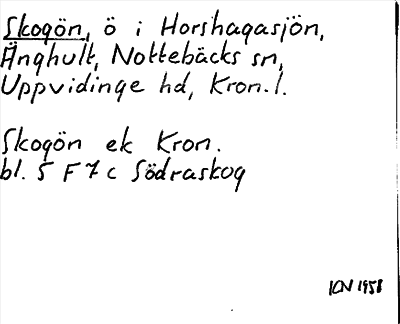 Skogön, ö i Horshagasjön,
Änghult, Nottebäcks sn,
Uppvidinge hd, Kron.l.
Skogön ek Kron.
bl. 5 F 7 c Södraskog
ICN 1958